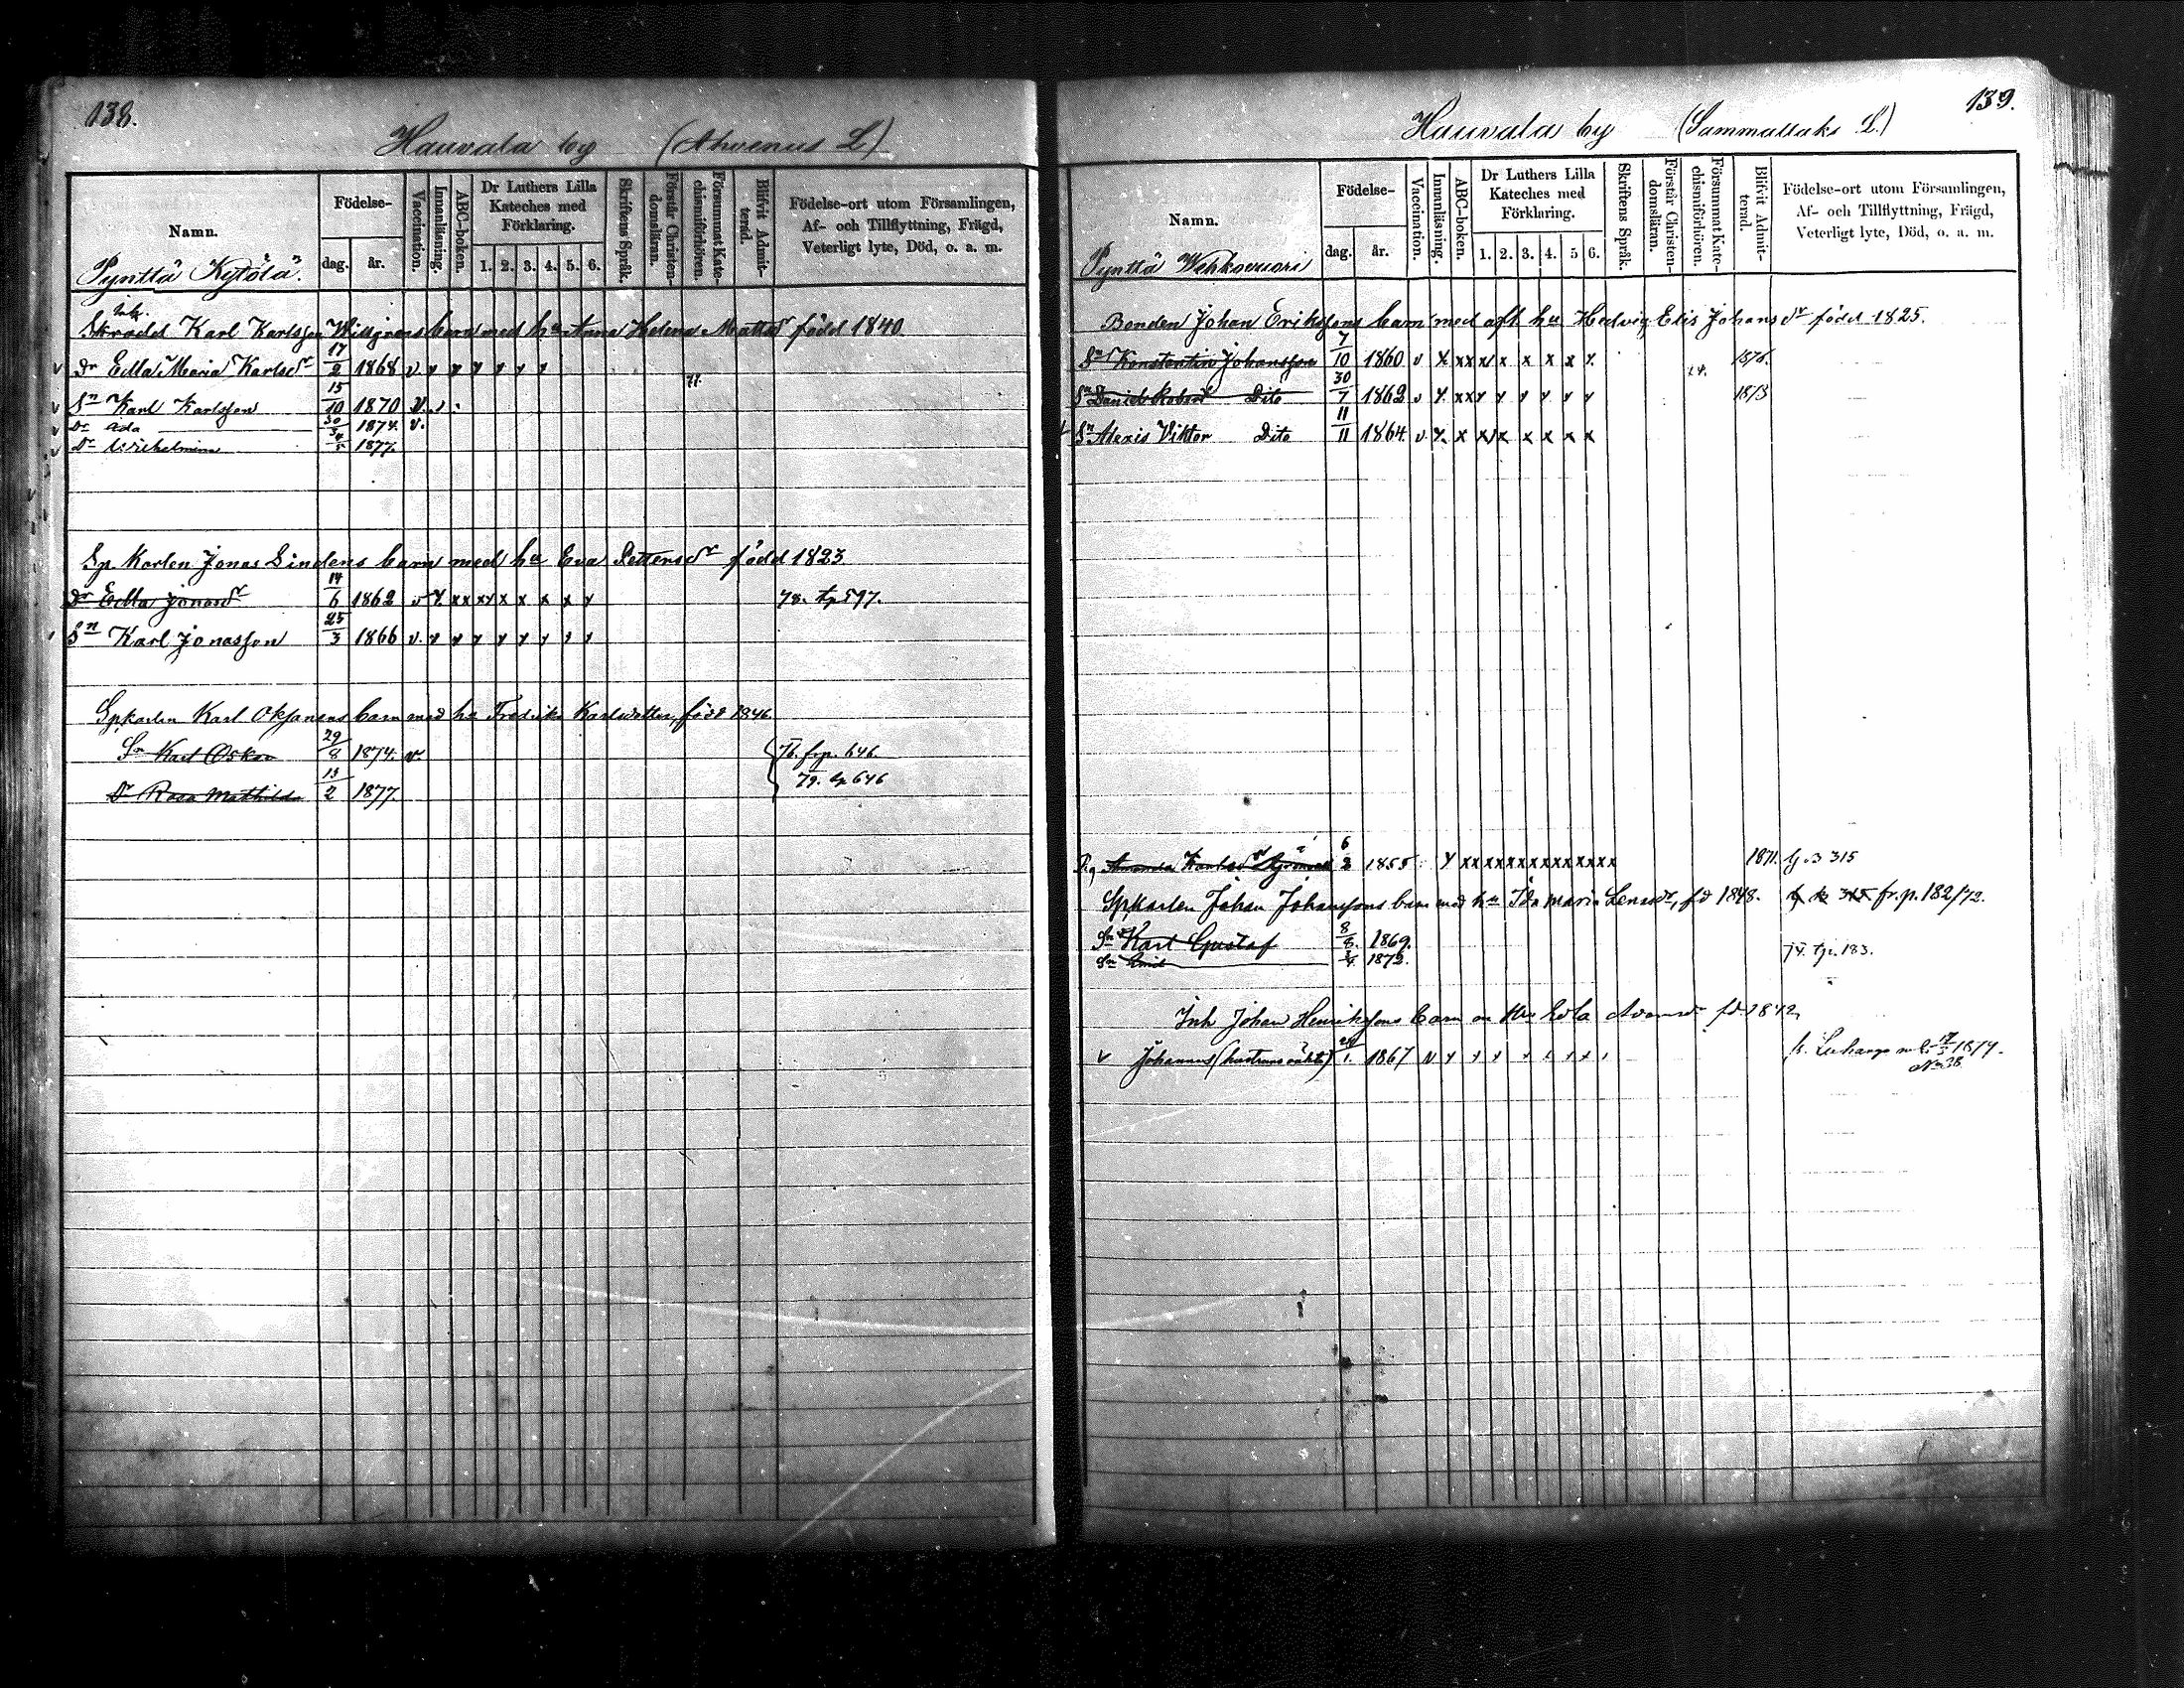 138.
Hauvala by (Ahvenus L)
Namn.
Födelse-
dag. år.
Vaccination.
Innanläsning.
ABC-boken.
Dr Luthers Lilla Kateches med Förklaring.
1. 2. 3. 4. 5. 6.
Skriftens Språk.
Förstår Christen-domsläran.
Försummat Kate-chismiförhören.
Blifvit Admit-terad.
Födelse-ort utom Församlingen, Af- och Tillflyttning, Frägd, Veterligt lyte, Död, o. a. m.
Pynttä Kytölä.
Inh.
Skrädd Karl Karlsson Willgrens barn med hu Anna Helena Mattsdr född 1840
v Dr Edla Maria Karlsdr 17/2 1868 v v v v v v v
77.
v Sn Karl Karlsson 15/10 1870 v. v .
v Dr Ada 30/3 1874. v.
v Dr Wilhelmina 1877.
Sp. Karlen Jonas Lindens barn med hu Eva Pettersdr född 1823
Dr Edla Jonasdr 14/6 1862 v x xx xx x x x x x 78. tp 597.
Sn Karl Jonasson 25/3 1866 v. x x x x x x x x
Spkarlen Karl Oksanens barn med hu Fredrika Karlsdotter, född 1846.
Sn Karl Oskar 29/8 1874. v. 76. frp. 646.
79. tp 646
Dr Rosa Mathilda 13/2 1877.
139.
Hauvala by (Sammallaks L.)
Namn.
Födelse-
dag. år.
Vaccination.
Innanläsning.
ABC-boken.
Dr Luthers Lilla Kateches med Förklaring.
1. 2. 3. 4. 5 6.
Skriftens Språk.
Förstår Christen-domsläran.
Försummat Kate-chismiförhören.
Blifvit Admit-terad.
Födelse-ort utom Församlingen, Af- och Tillflyttning, Frägd, Veterligt lyte, Död, o. a. m.
Pynttä Wehkovuori
Bonden Johan Erikssons barn med afl hu Hedvig Elis Johansdr född 1825.
Sn Konstantin Johansson 7/10 1860 v x xx x x x x x x x 1876.
Sn Daniel Robert Dito 30/7 1862 v x xx x x x x x x 1878
Sn Alexis Viktor Dito 11/11 1864 v. x. x xx x x x x x
Pig Amanda Karlsdr 6/2 1855 x xx xx xx xx xx xx xx 1871. 315
Spkarlen Johan Johanssons barn med hu Ida Maria Lenasdr, fd 1848. 315 fr.p. 182/72.
Sn Karl Gustaf 8/8. 1869.
Sn Emil 1872. 74. tp. 183.
Inh Johan Henrikssons barn m Hu Eva Adamsdr fd 1842,
v Johannes (hustruns oäkta) 1867 v x x x x x x x 1879.
No 38